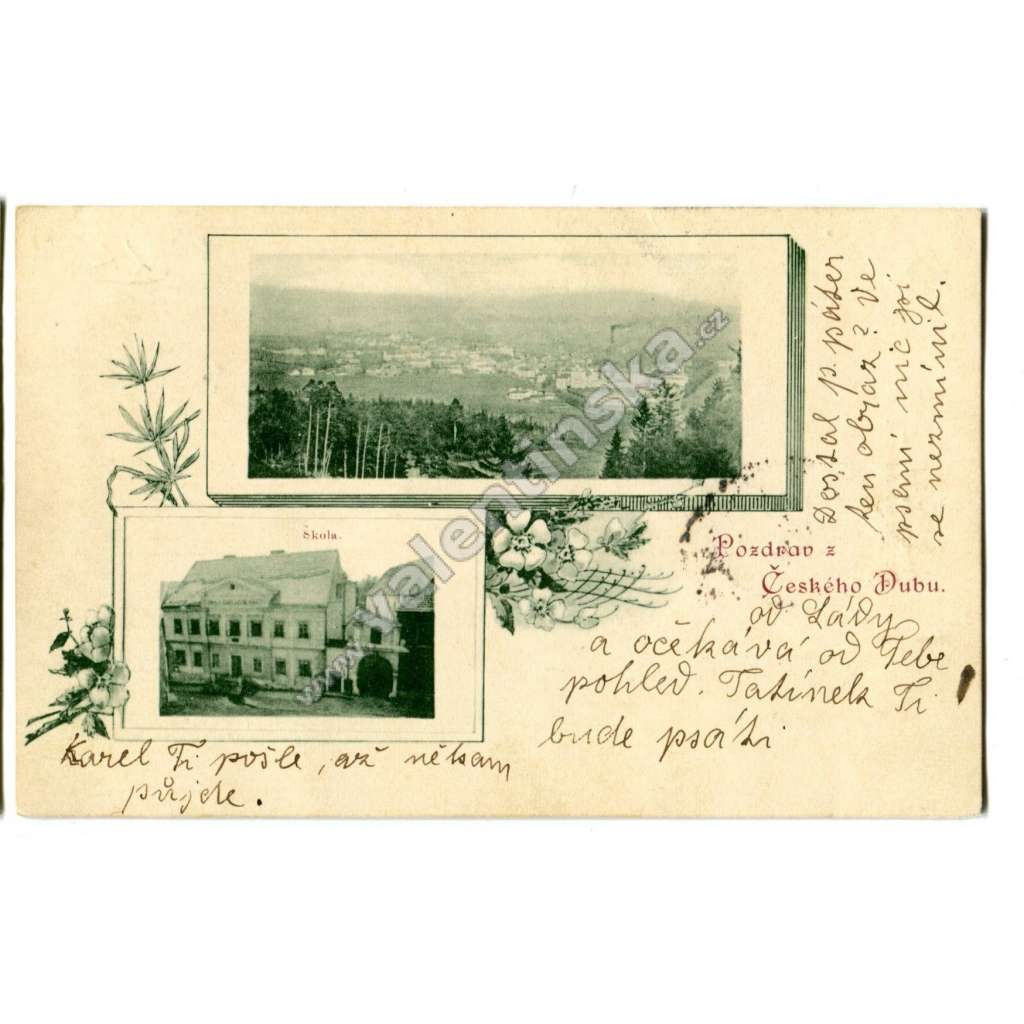 Škola.
Pozdrav z
Českého Dubu.
od Lády
a očekává od Tebe
pohled. Tatínek Ti
bude psáti
Karel Ti pošle, až někam
půjde.
Dostal p. páter
ten obraz? Ve
psaní nic jsi
se nezmínil.
www.valentinska.cz